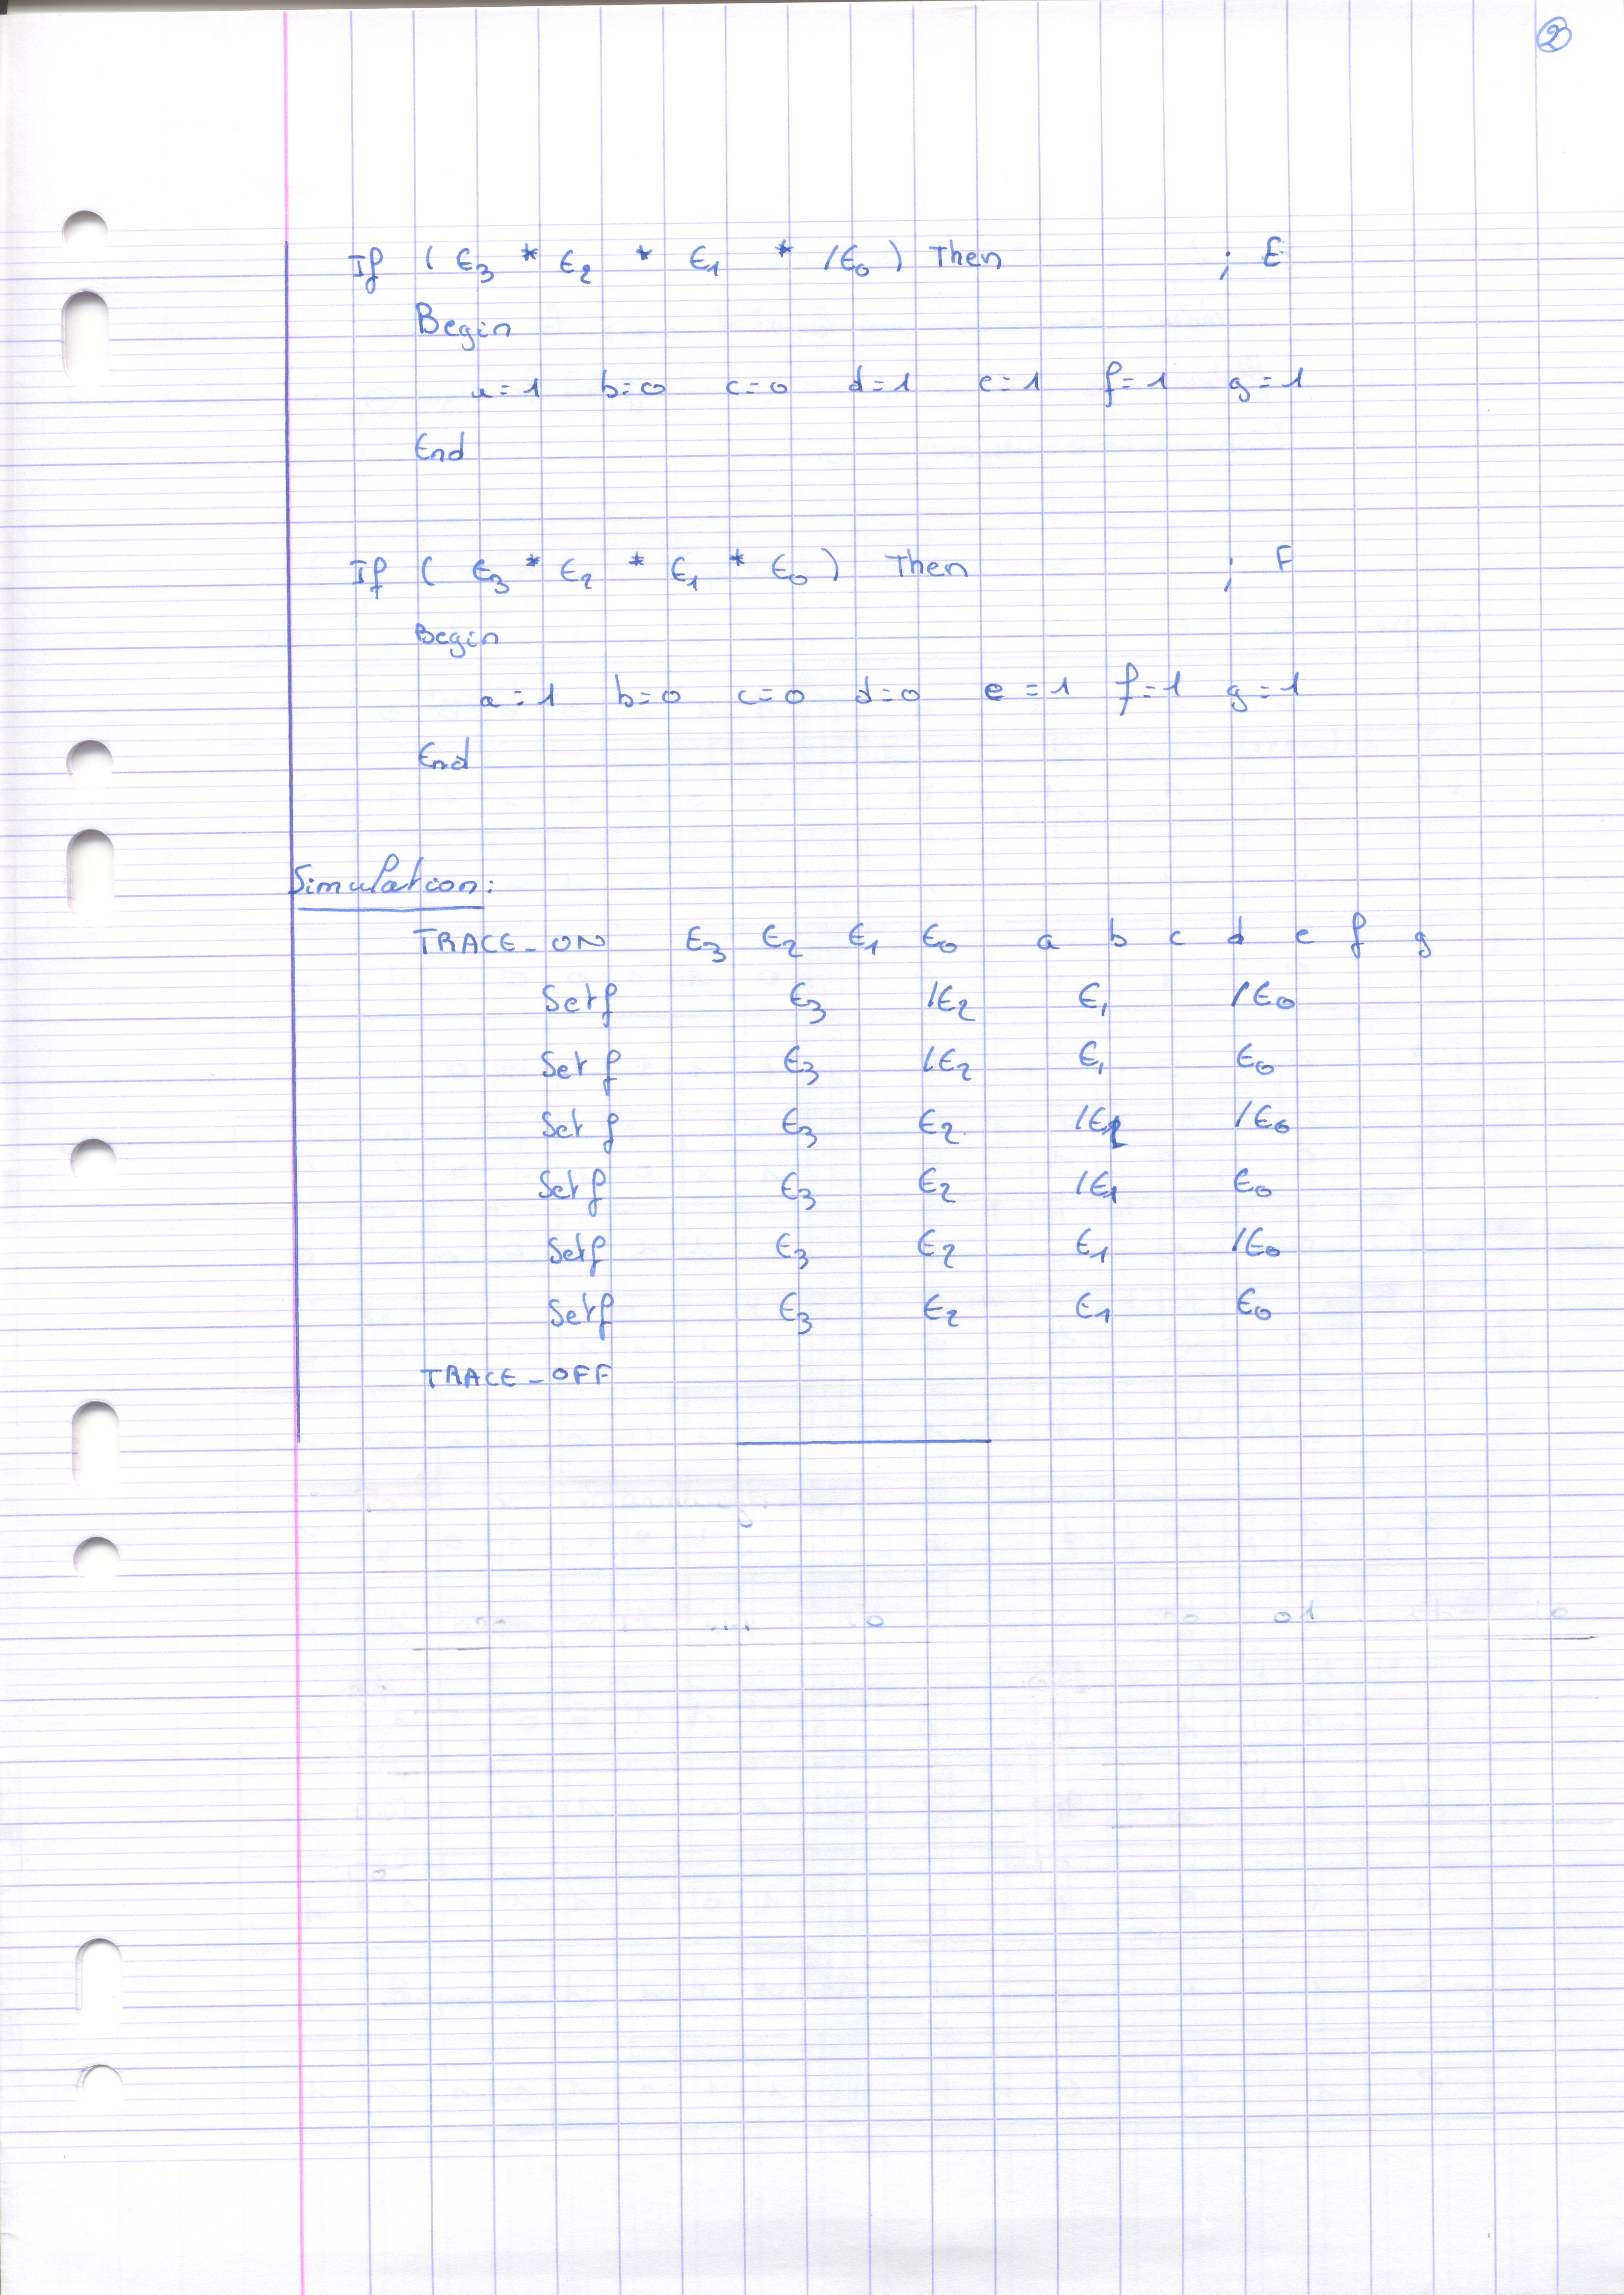 2
If ( E3 * E2 * E1 * /E0 ) Then ; E
Begin
a=1 b=0 c=0 d=1 e=1 f=1 g=1
End
If ( E3 * E2 * E1 * E0 ) Then ; F
Begin
a=1 b=0 c=0 d=0 e=1 f=1 g=1
End
Simulation:
TRACE_ON E3 E2 E1 E0 a b c d e f g
Setf E3 /E2 E1 /E0
Setf E3 /E2 E1 E0
Setf E3 E2 /E1 /E0
Setf E3 E2 /E1 E0
Setf E3 E2 E1 /E0
Setf E3 E2 E1 E0
TRACE_OFF